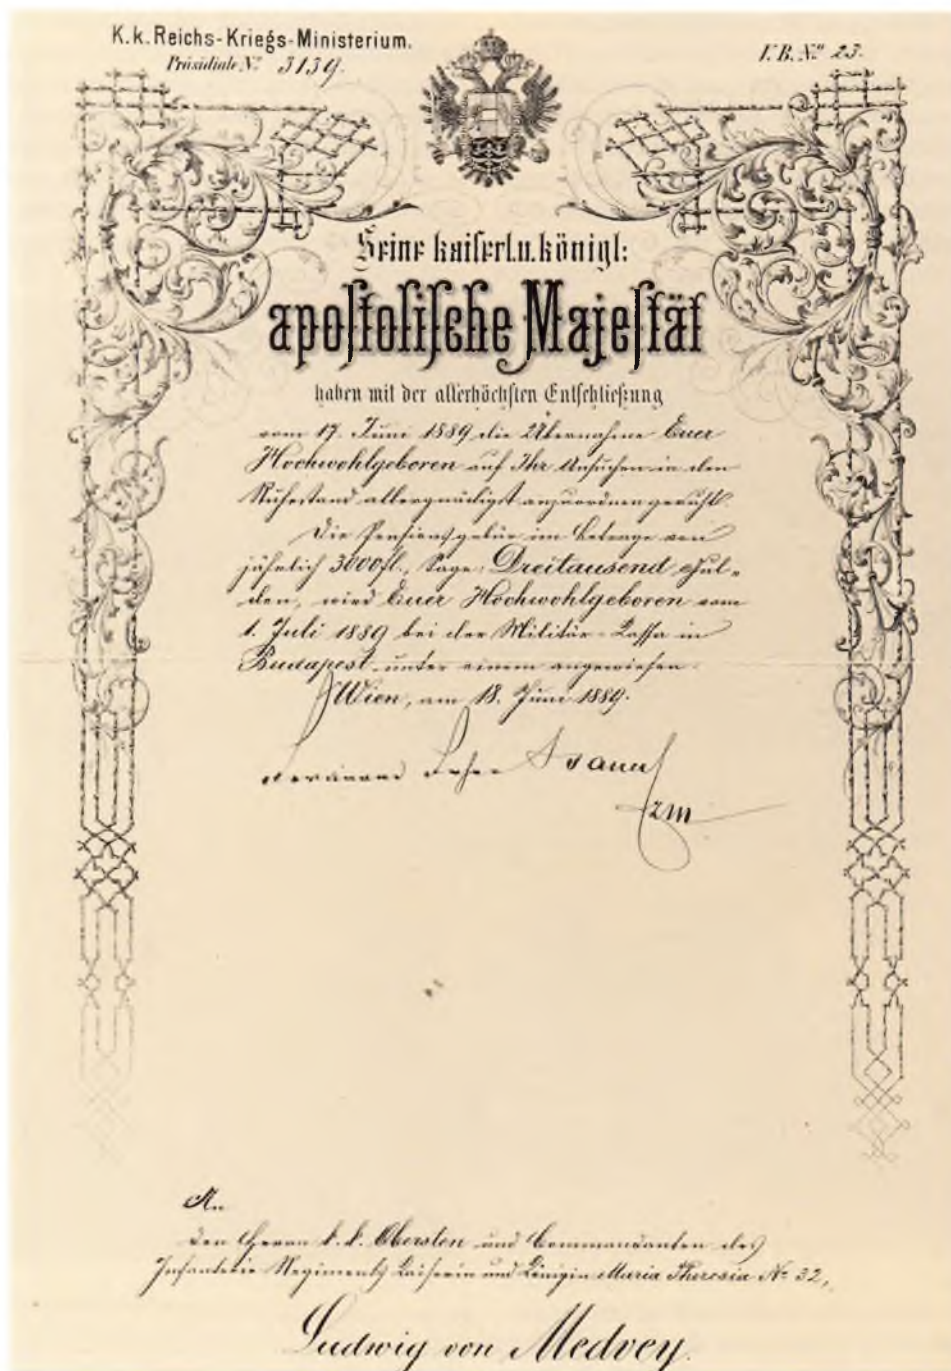 K.k. Reichs-Kriegs-Ministerium.
Präsidiale No 3139.
V. B. No 23.
Seine kaiserl. u. königl:
apostolische Majestät
haben mit der allerhöchsten Entschließung
vom 17. Juni 1889 die Übernahme Euer
Hochwohlgeboren auf Ihr Ansuchen in den
Ruhestand allergnädigst anzuordnen geruht.
Die Pensionsgebür im Betrage von
jährlich 3000 fl., Sage: Dreitausend Gul-
den, wird Euer Hochwohlgeboren vom
1. Juli 1889 bei der Militär-Cassa in
Budapest unter einem angewiesen.
Wien, am 18. Juni 1889.
Bauer
FZM
An
den Herrn k. k. Obersten und Commandanten des
Infanterie Regiments Kaiserin und Königin Maria Theresia No 32,
Ludwig von Medvey.